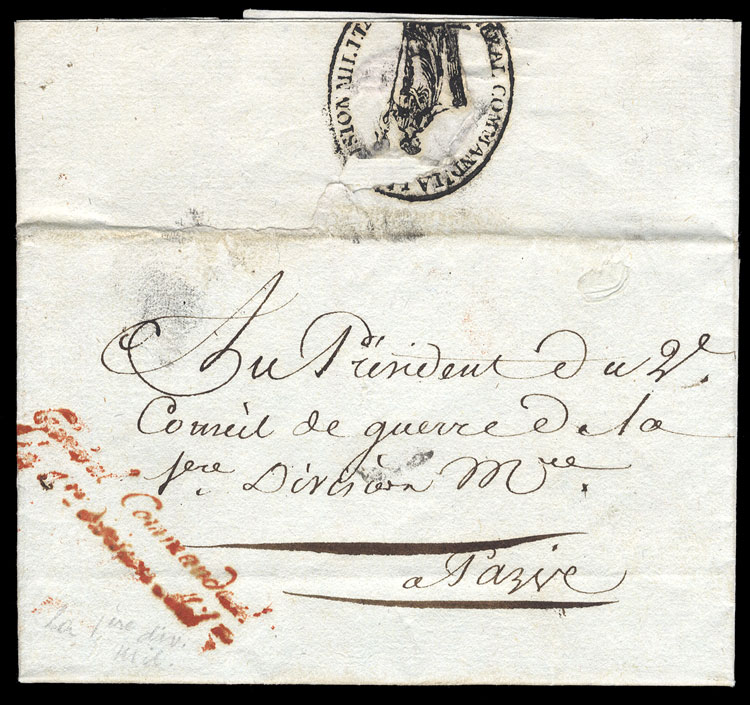 RAL COMMAND.T LA 1
ISION MILIT
Au Président du 2e.
Conseil de guerre de la
1ere. Division Mre.
a Paris
Général Commandant
la 1re division Mil re
La 1ère div.
Mil.